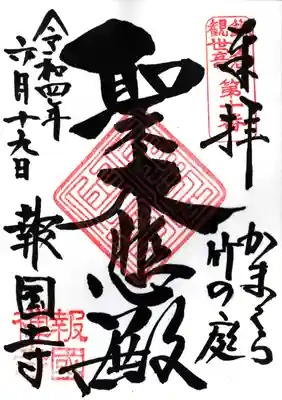 奉拝
かまくら
竹の庭
聖大悲殿
令和四年
六月十九日
報国寺
観世音第十番
報國